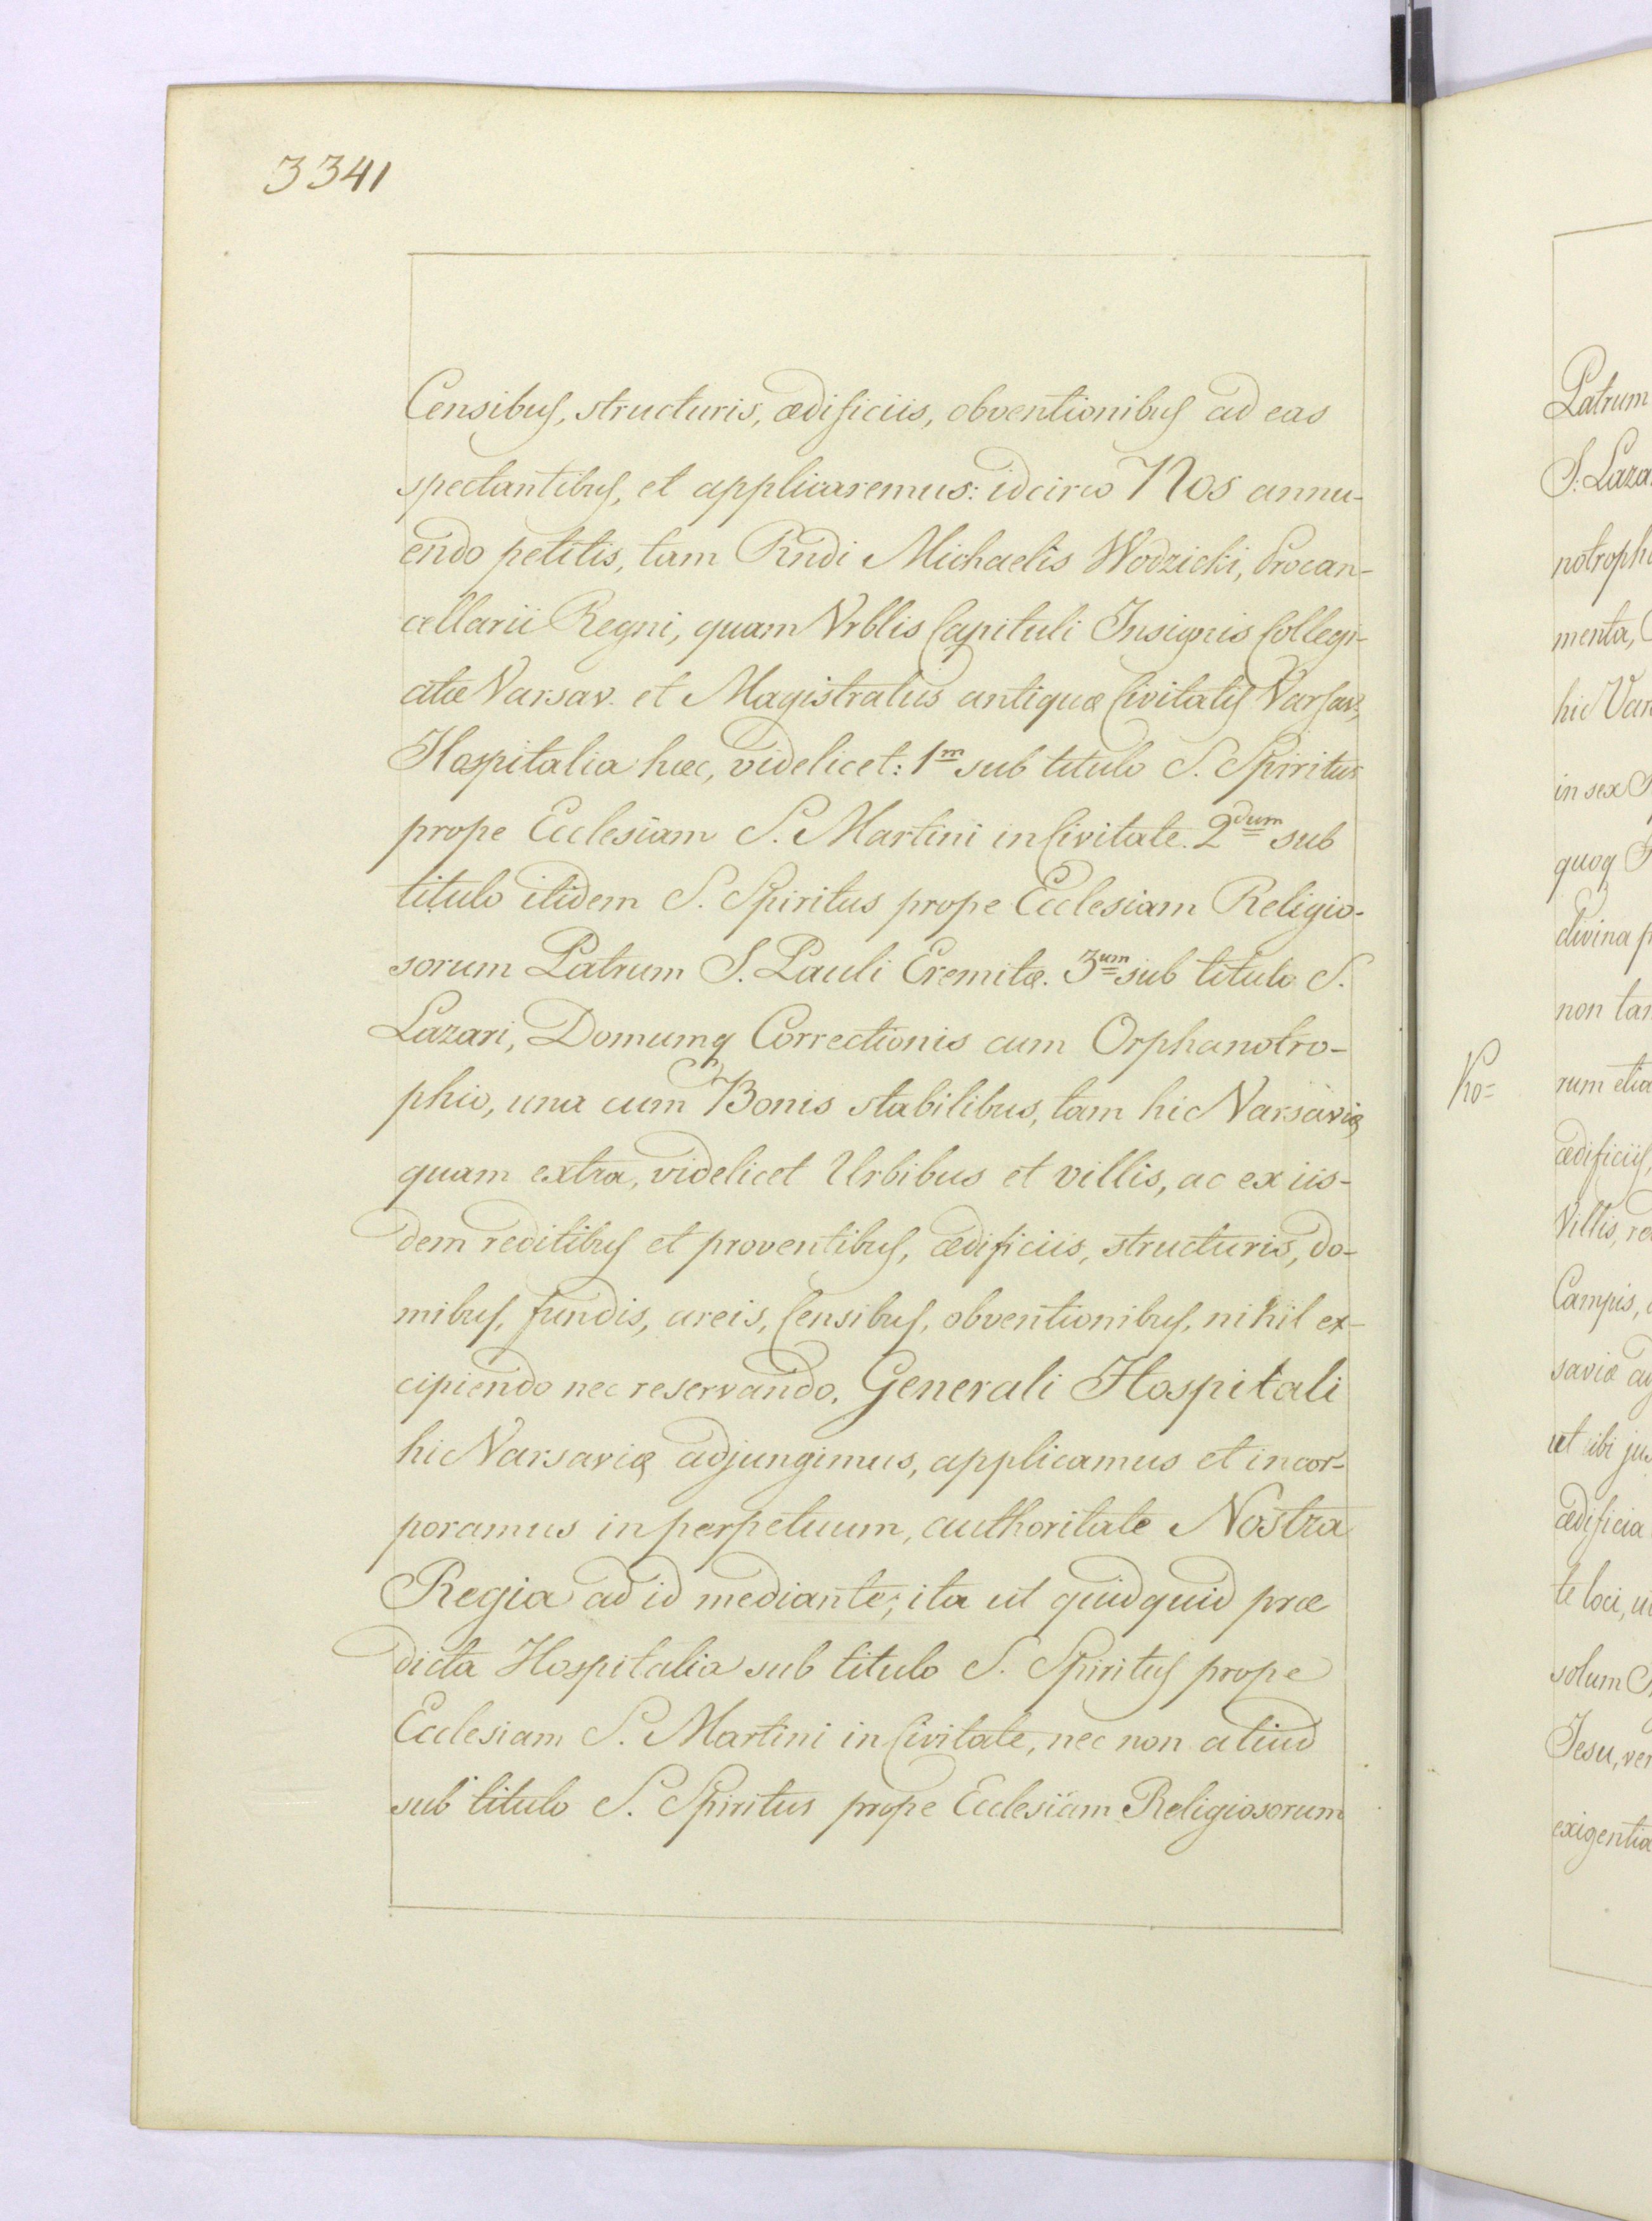 3341
Censibus, structuris, ædificiis, obventionibus ad eas
spectantibus, et applicaremus: idcirco Nos annu-
endo petitis, tam Rndi Michaelis Wodzicki, Procan-
cellarii Regni, quam Vrblis Capituli Insignis Collegi-
atæ Varsav. et Magistratus antiquæ Civitatis Varsav,
Hospitalia hæc, videlicet: 1m sub titulo S. Spiritus
prope Ecclesiam S. Martini in Civitate. 2dum sub
titulo itidem S. Spiritus prope Ecclesiam Religio-
sorum Patrum S. Pauli Eremitæ. 3um sub titulo S.
Lazari, Domumq Correctionis cum Orphanotro-
phio, una cum Bonis stabilibus, tam hic Varsaviæ
quam extra, videlicet Urbibus et villis, ac ex iis-
dem reditibus et proventibus, ædificiis, structuris, do-
mibus, fundis, areis, Censibus, obventionibus, nihil ex-
cipiendo nec reservando, Generali Hospitali
hic Varsaviæ adjungimus, applicamus et incor-
poramus in perpetuum, authoritate Nostra
Regia ad id mediante; ita ut quidquid præ
dicta Hospitalia sub titulo S. Spiritus prope
Ecclesiam S. Martini in Civitate, nec non aliud
sub titulo S. Spiritus prope Ecclesiam Religiosorum
Patrum
S. Laza
notroph
menta,
hic Var
in sex
quoq
divina p
non tan
rum etia
ædificiis,
Villis, re
Campis,
saviæ
ut ibi jus
ædificia
te loci, u
solum
Jesu, ver
exigentia